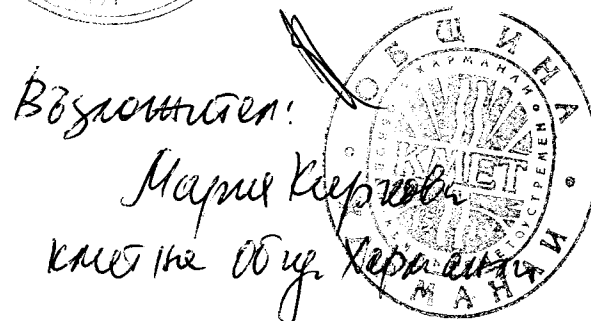 Възложител:
Мария Киркова
кмет на Общ. Харманли
ОБЩИНА
ХАРМАНЛИ
КМЕТ